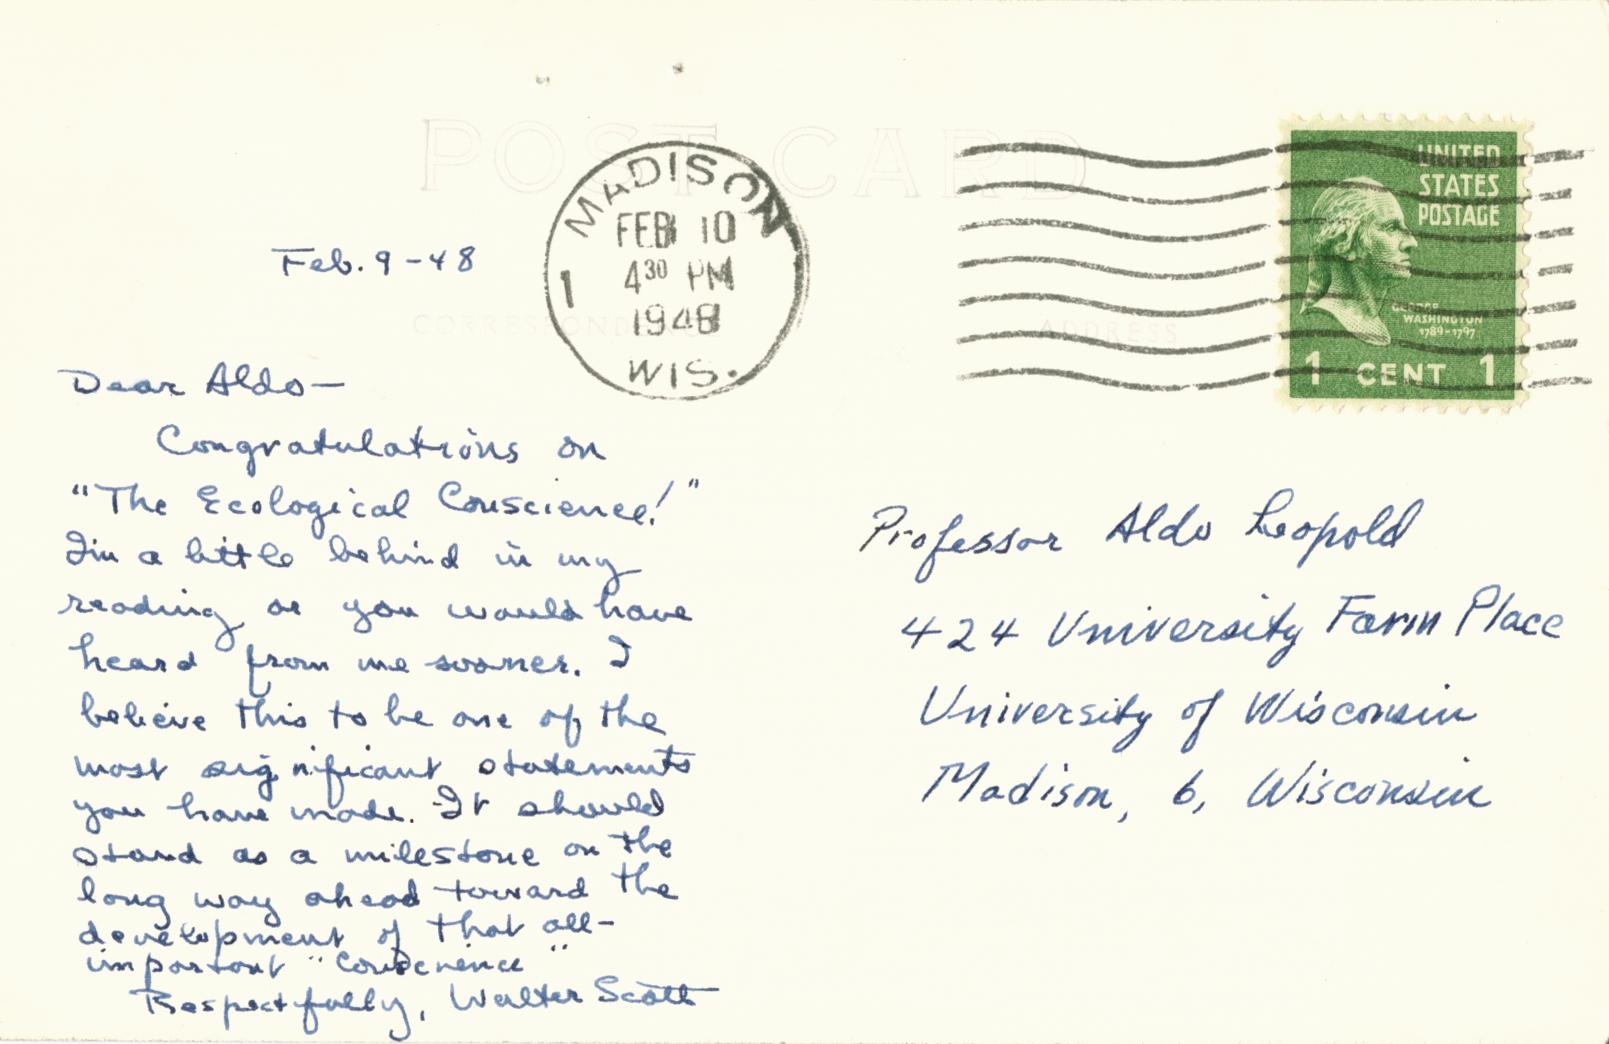 POST CARD
MADISON
FEB 10
4 30 PM
1948
1
WIS.
UNITED
STATES
POSTAGE
GEORGE
WASHINGTON
1789-1797
1 CENT 1
CORRESPONDENCE
ADDRESS
Feb. 9-48
Dear Aldo—
Congratulations on
"The Ecological Conscience!"
I'm a little behind in my
reading or you would have
heard from me sooner. I
believe this to be one of the
most significant statements
you have made. It should
stand as a milestone on the
long way ahead toward the
development of that all-
important "conscience"
Respectfully, Walter Scott
Professor Aldo Leopold
424 University Farm Place
University of Wisconsin
Madison, 6, Wisconsin